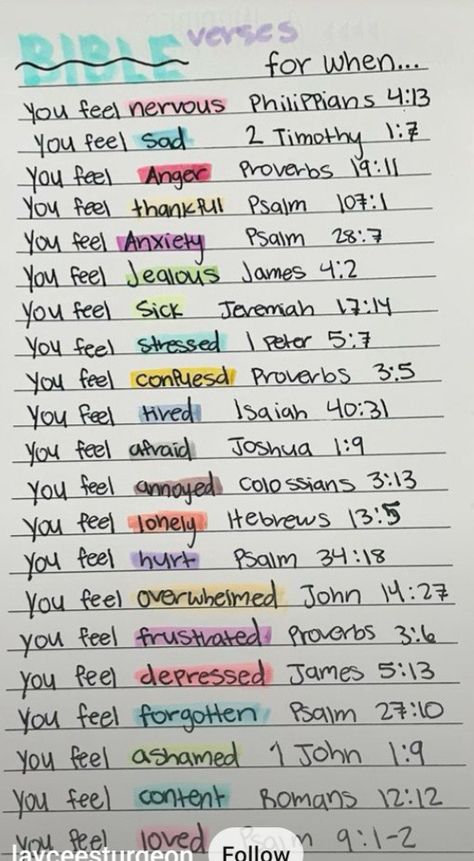 BIBLE verses
for when...
You feel nervous Philippians 4:13
You feel sad 2 Timothy 1:7
You feel Anger Proverbs 19:11
You feel thankful Psalm 107:1
You feel Anxiety Psalm 28:7
You feel Jealous James 4:2
You feel Sick Jeremiah 17:14
You feel stressed 1 Peter 5:7
You feel confyesd Proverbs 3:5
You feel tired Isaiah 40:31
You feel afraid Joshua 1:9
You feel annoyed Colossians 3:13
You feel lonely Hebrews 13:5
You feel hurt Psalm 34:18
You feel overwhelmed John 14:27
you feel frustrated Proverbs 3:6
you feel depressed James 5:13
You feel forgotten Psalm 27:10
You feel ashamed 1 John 1:9
You feel content Romans 12:12
You feel loved 9:1-2
layceesturgeon Follow